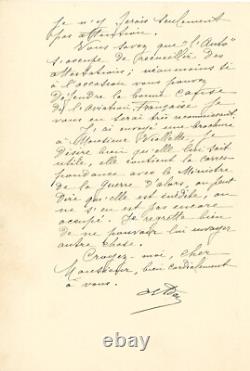 je n'y ferais seulement
pas attention.
Vous savez que "l'Auto"
s'occupe de recueillir des
attestations; néanmoins si
à l'occasion vous pouvez
défendre la bonne cause
de l'aviation Française je
vous en serai très reconnaissant.
J'ai envoyé une brochure
à Monsieur Violette. Je
désire bien qu'elle lui soit
utile, elle contient la corres-
pondance avec le Ministre
de la Guerre d'alors, on peut
dire qu'elle est inédite, on
ne s'en est pas encore
occupé. Je regrette bien
de ne pouvoir lui envoyer
autre chose.
Croyez-moi, cher
Monsieur, bien cordialement
à vous.
Ader
ebay